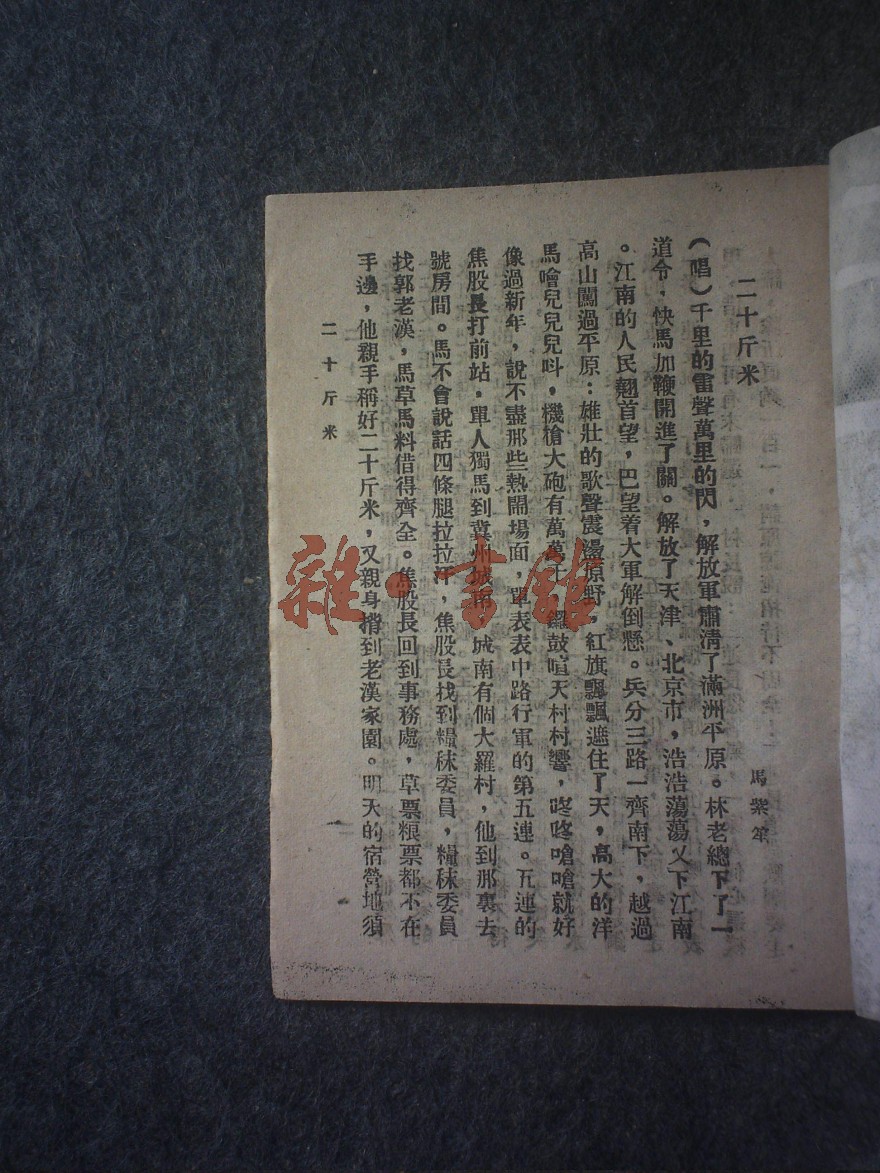 二十斤米
馬紫笙
(唱)千里的雷聲萬里的閃,解放軍肅清了滿洲平原。林老總下了一
道令,快馬加鞭開進了關。解放了天津、北京市,浩浩蕩蕩又下江南
。江南的人民翹首望,巴望着大軍解倒懸。兵分三路一齊南下,越過
高山闖過平原:雄壯的歌聲震盪原野,紅旗飄飄遮住了天,高大的洋
馬噲兒兒兒呌,機槍大砲有萬萬千 鑼鼓喧天村村響,咚咚嗆嗆就好
像過新年,說不盡那些熱鬧場面,單表表中路行軍的第五連。五連的
焦股長打前站,單人獨馬到冀州城南 城南有個大羅村,他到那裏去
號房間。馬不會說話四條腿拉拉汗,焦股長找到糧秣委員,糧秣委員
找郭老漢,馬草馬料借得齊全。焦股長回到事務處,草票粮票都不在
手邊,他親手稱好二十斤米,又親身揹到老漢家園。明天的宿營地須
二十斤米
一
雜·書館